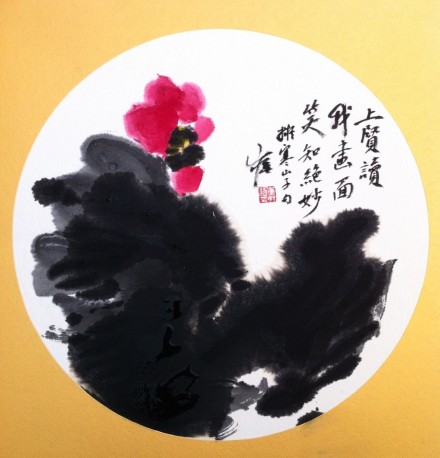 上賢讀
我畫面
笑知絕妙
擬寒山子句